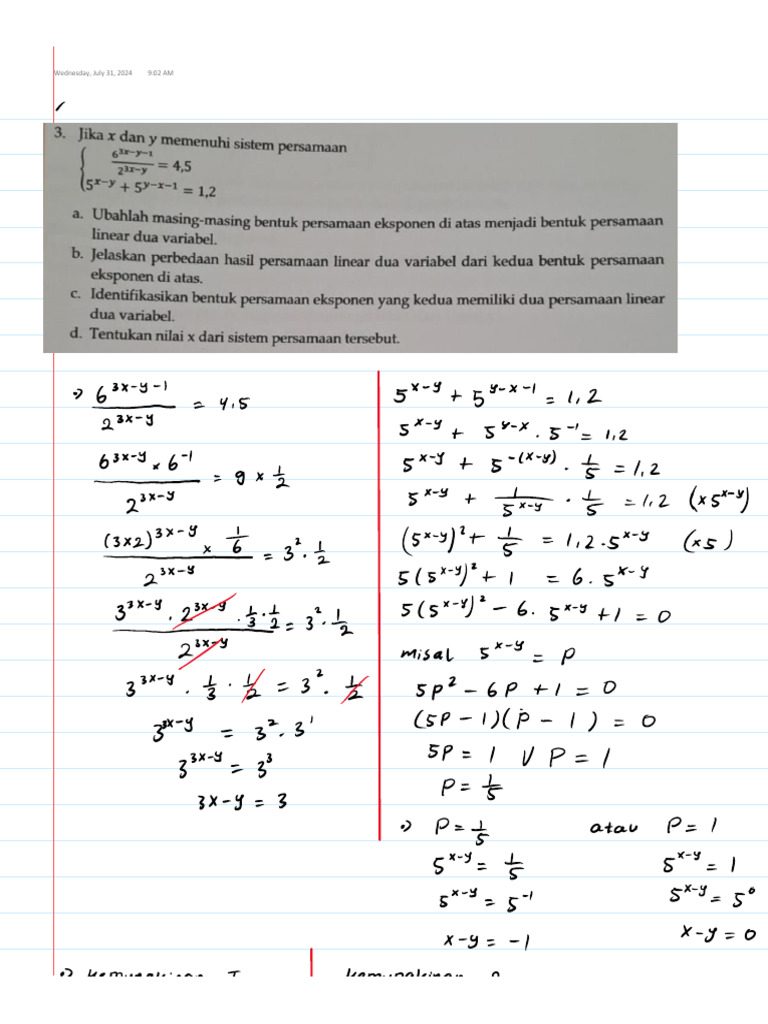 Wednesday, July 31, 2024 9:02 AM
3. Jika x dan y memenuhi sistem persamaan
{ 6^(3x−y−1) / 2^(3x−y) = 4,5
5^(x−y) + 5^(y−x−1) = 1,2
a. Ubahlah masing-masing bentuk persamaan eksponen di atas menjadi bentuk persamaan
linear dua variabel.
b. Jelaskan perbedaan hasil persamaan linear dua variabel dari kedua bentuk persamaan
eksponen di atas.
c. Identifikasikan bentuk persamaan eksponen yang kedua memiliki dua persamaan linear
dua variabel.
d. Tentukan nilai x dari sistem persamaan tersebut.
6^(3x−y−1) / 2^(3x−y) = 4,5
6^(3x−y) × 6^(−1) / 2^(3x−y) = 9 × 1/2
(3×2)^(3x−y) × 1/6 / 2^(3x−y) = 3^2 · 1/2
3^(3x−y) · 2^(3x−y) · 1/3 · 1/2 / 2^(3x−y) = 3^2 · 1/2
3^(3x−y) · 1/3 · 1/2 = 3^2 · 1/2
3^(3x−y) = 3^2 · 3^1
3^(3x−y) = 3^3
3x−y = 3
5^(x−y) + 5^(y−x−1) = 1,2
5^(x−y) + 5^(y−x) · 5^(−1) = 1,2
5^(x−y) + 5^(−(x−y)) · 1/5 = 1,2
5^(x−y) + 1/5^(x−y) · 1/5 = 1,2 (×5^(x−y))
(5^(x−y))^2 + 1/5 = 1,2 · 5^(x−y) (×5)
5(5^(x−y))^2 + 1 = 6 · 5^(x−y)
5(5^(x−y))^2 − 6 · 5^(x−y) + 1 = 0
misal 5^(x−y) = P
5P^2 − 6P + 1 = 0
(5P − 1)(P − 1) = 0
5P = 1 ∨ P = 1
P = 1/5
P = 1/5 atau P = 1
5^(x−y) = 1/5 5^(x−y) = 1
5^(x−y) = 5^(−1) 5^(x−y) = 5^0
x−y = −1 x−y = 0